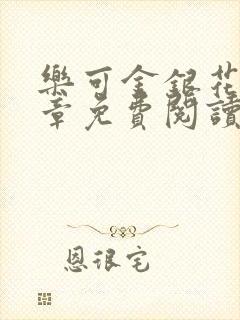 樂可金銀花
章免費閱讀
恩很宅